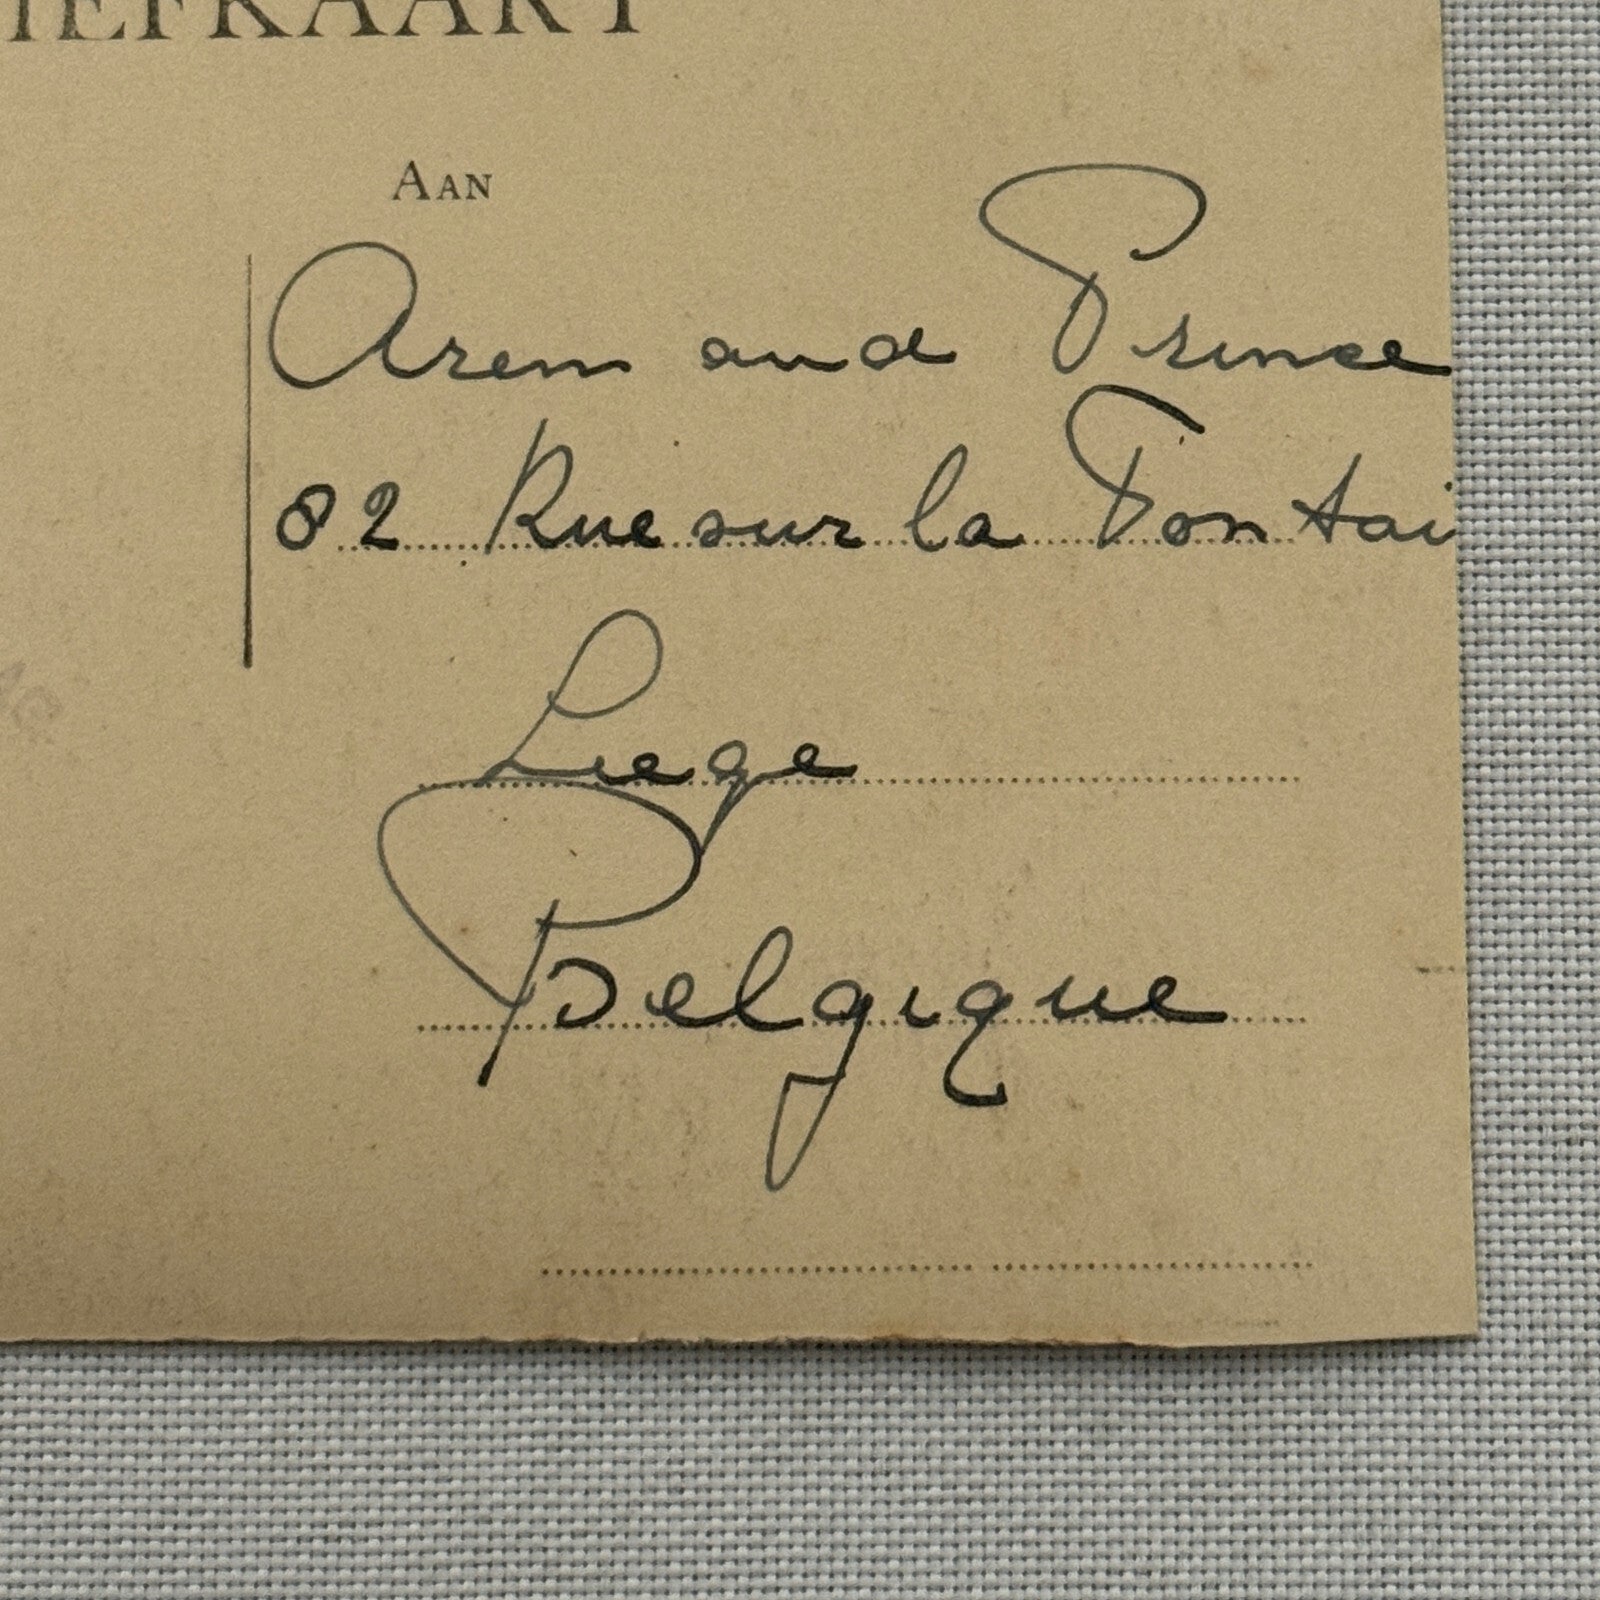 IEFKAART
AAN
Arem and Prince
82 Rue sur la Fontai
Liege
Belgique